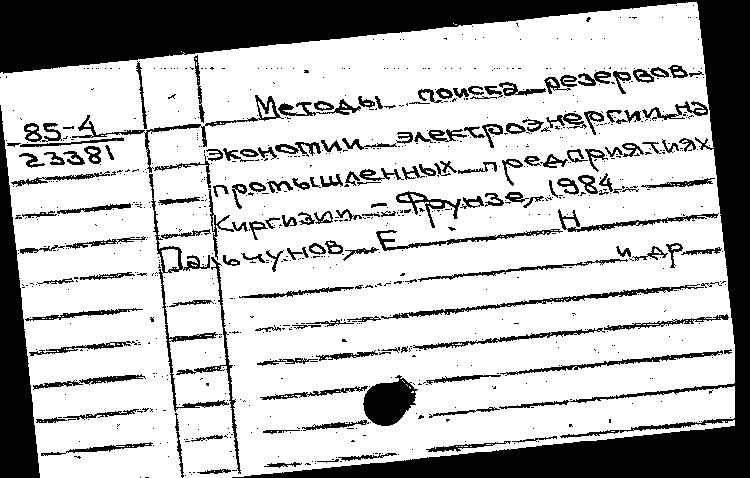 85-4
23381
Методы поиска резервов
экономии электроэнергии на
промышленных предприятиях
Киргизии - Фрунзе, 1984
Пальчунов, Е Н
и др